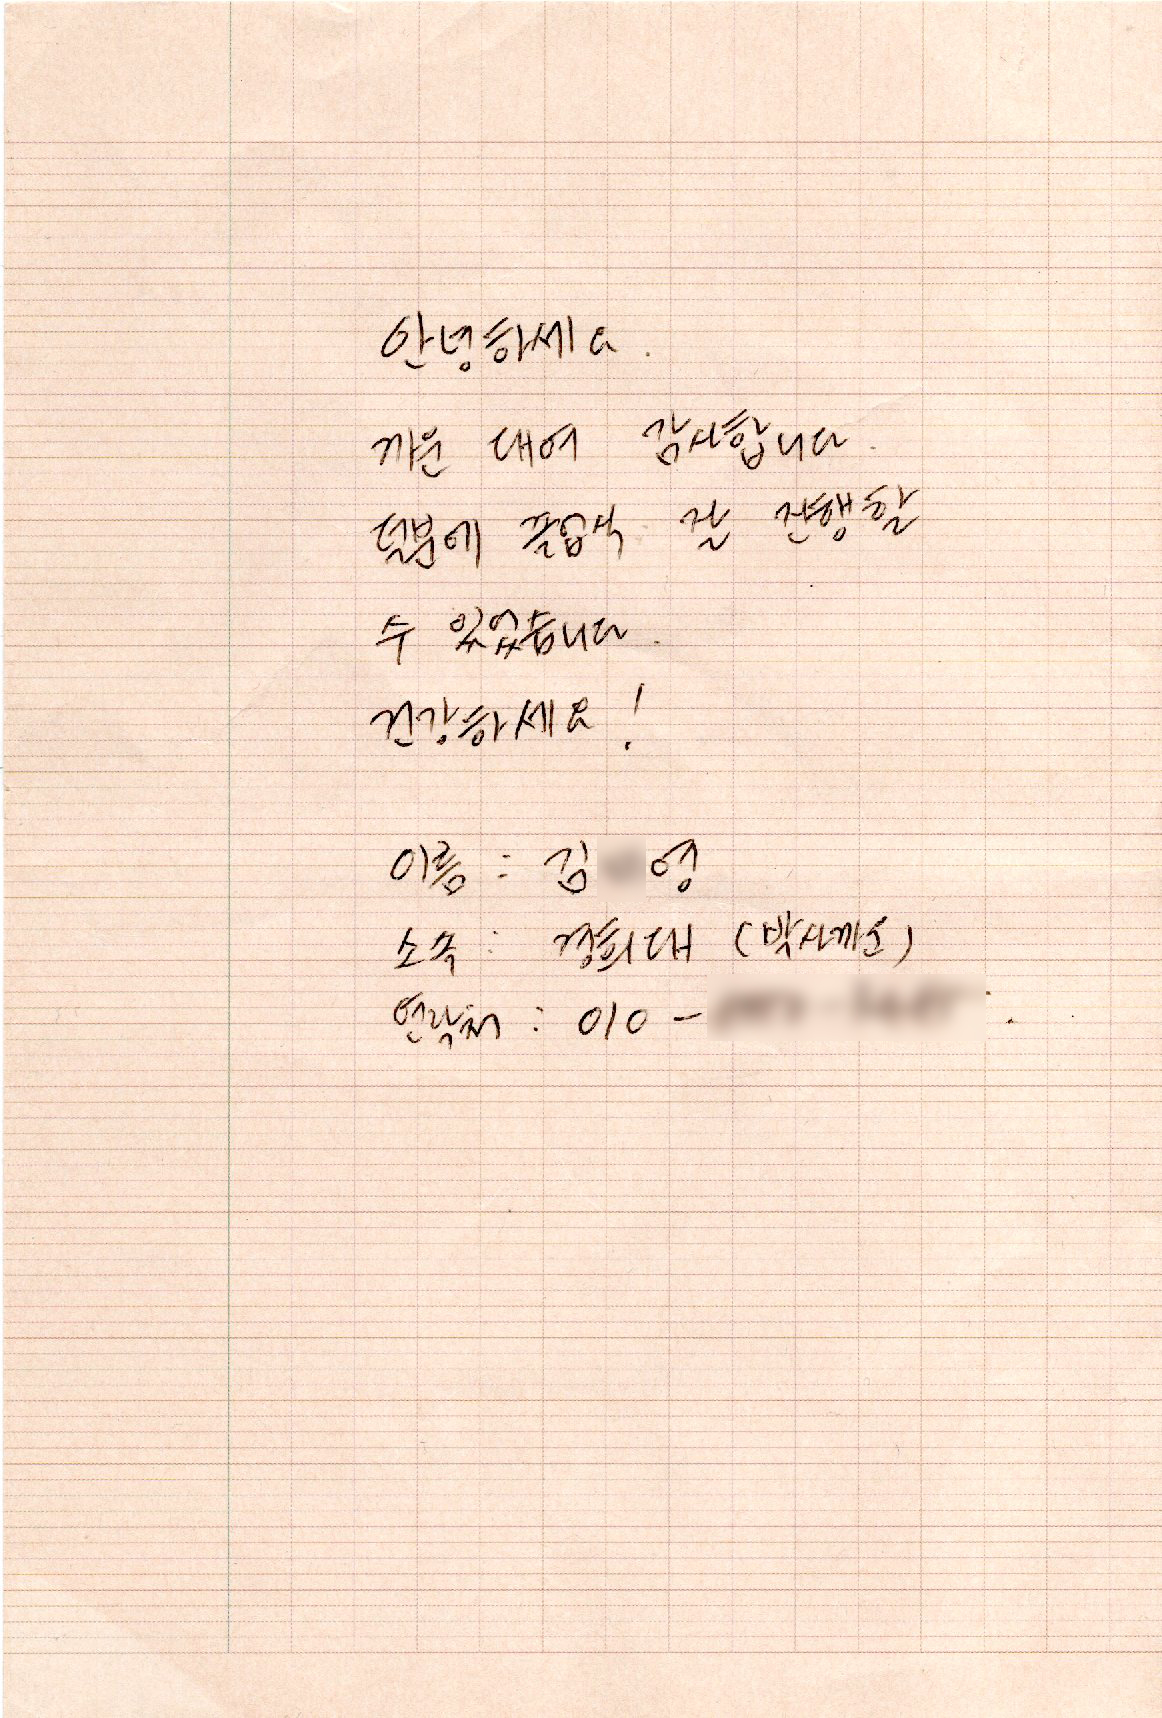 안녕하세요.
까운 대여 감사합니다.
덕분에 졸업식 잘 진행할
수 있었습니다.
건강하세요!
이름 : 김 영
소속 : 경희대 (박사까운)
연락처 : 010 -